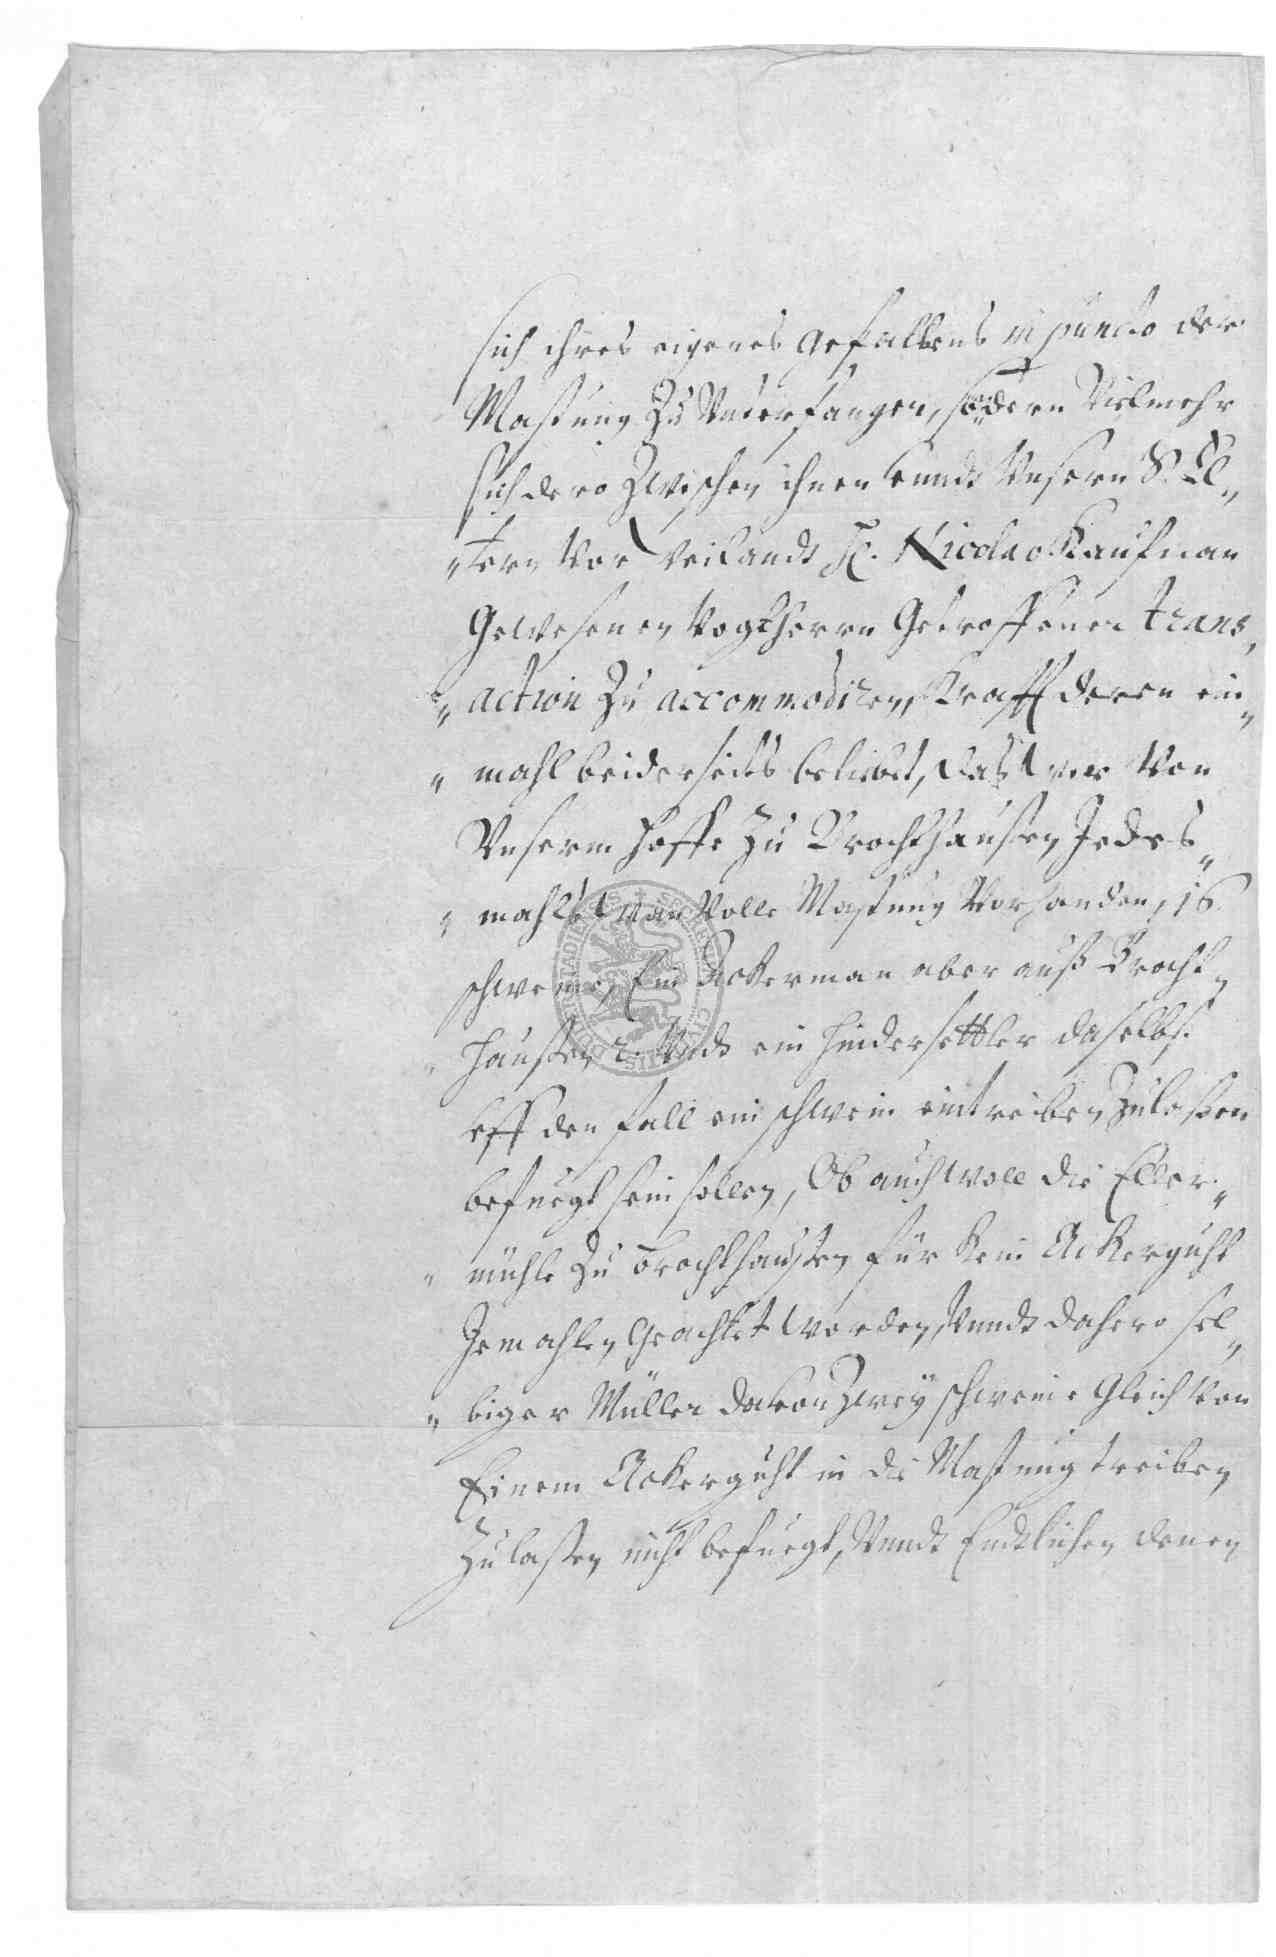 sich ihres eigenes gefallens in puncto der
Mastung Zu Unterfangen, sondern Vielmehr
sich dero Zwischen ihnen unndt Unsern S. El„
„tern Vor Weilandt H. Nicolao Kaufman
Gewesenen Vogtherrn Getroffener trans„
„action Zu accommodiren, Krafft deren ein„
„mahl beiderseits beliebet, daß wir Von
Unserm Hoffe Zu Brochthausen Jedes„
„mahls wan Volle Mastung Vorhanden, 16
schweine, Ein Ackerman aber auß Brocht„
„hausen 2. Undt ein hindersettler daselbst
uff den fall ein schwein eintreiben Zulaßen
befuegt sein sollen, Ob auch woll die Eller„
„mühle Zu Brochthausen für kein Ackerguht
Jemahlen Geachtet worden, Unndt dahero sel„
„biger Müller davon Zwey schweine Gleich von
Einem Ackerguht in die Mastung treiben
Zulaßen nicht befuegt, Unndt Endtlichen denen